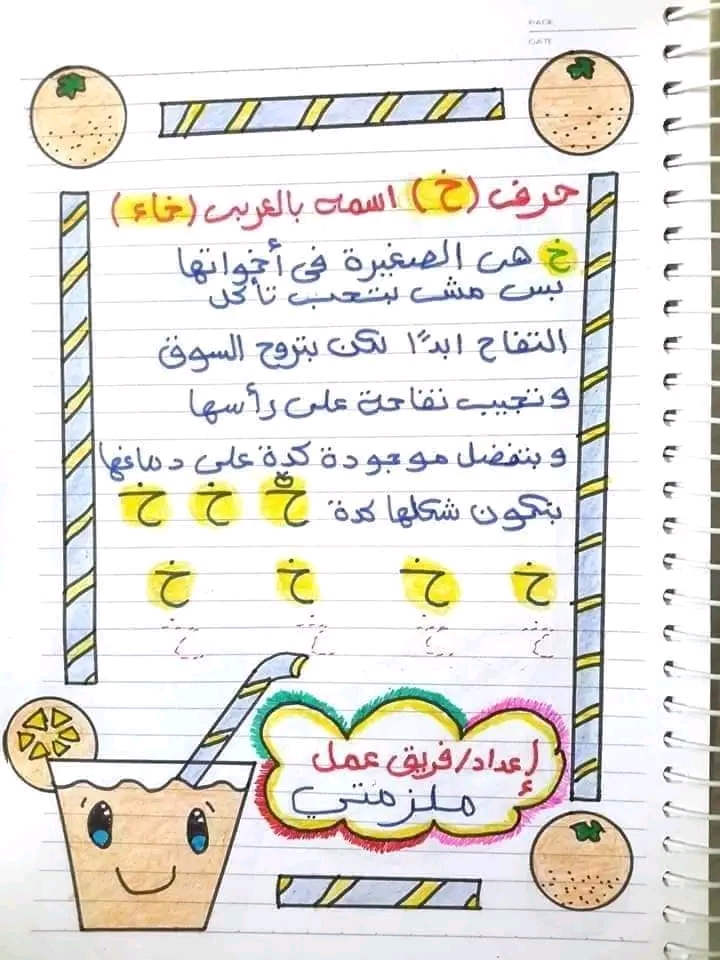 PAGE
DATE
حرف (خ) اسمه بالعربى (خاء)
خ هى الصغيرة فى أخواتها
بس مش بتحب تأكل
التفاح ابدًا لكن بتروح السوق
وتجيب تفاحة على رأسها
وبتفضل موجودة كدة على دماغها
بتكون شكلها كدة خ خ خ
خ خ خ خ
خ خ خ خ
إعداد/فريق عمل
ملزمتي